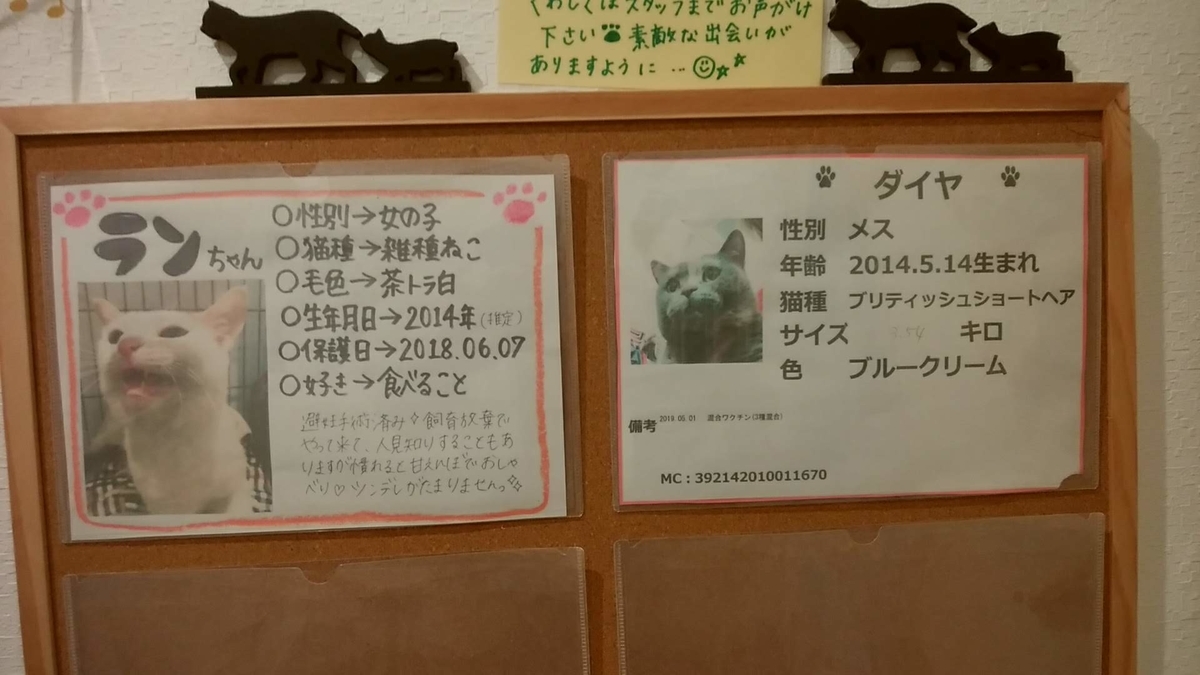 くわしくはスタッフまでお声がけ
下さい 素敵な出会いが
ありますように…
ランちゃん
○性別→女の子
○猫種→雑種ねこ
○毛色→茶トラ白
○生年月日→2014年(推定)
○保護日→2018.06.07
○好き→食べること
避妊手術済み 飼育放棄で
やって来て、人見知りすることもあ
りますが慣れると甘えんぼでおしゃ
べり♡ツンデレがたまりませんっ
ダイヤ
性別 メス
年齢 2014.5.14生まれ
猫種 ブリティッシュショートヘア
サイズ キロ
色 ブルークリーム
備考 2019.05.01 混合ワクチン(3種混合)
MC:392142010011670